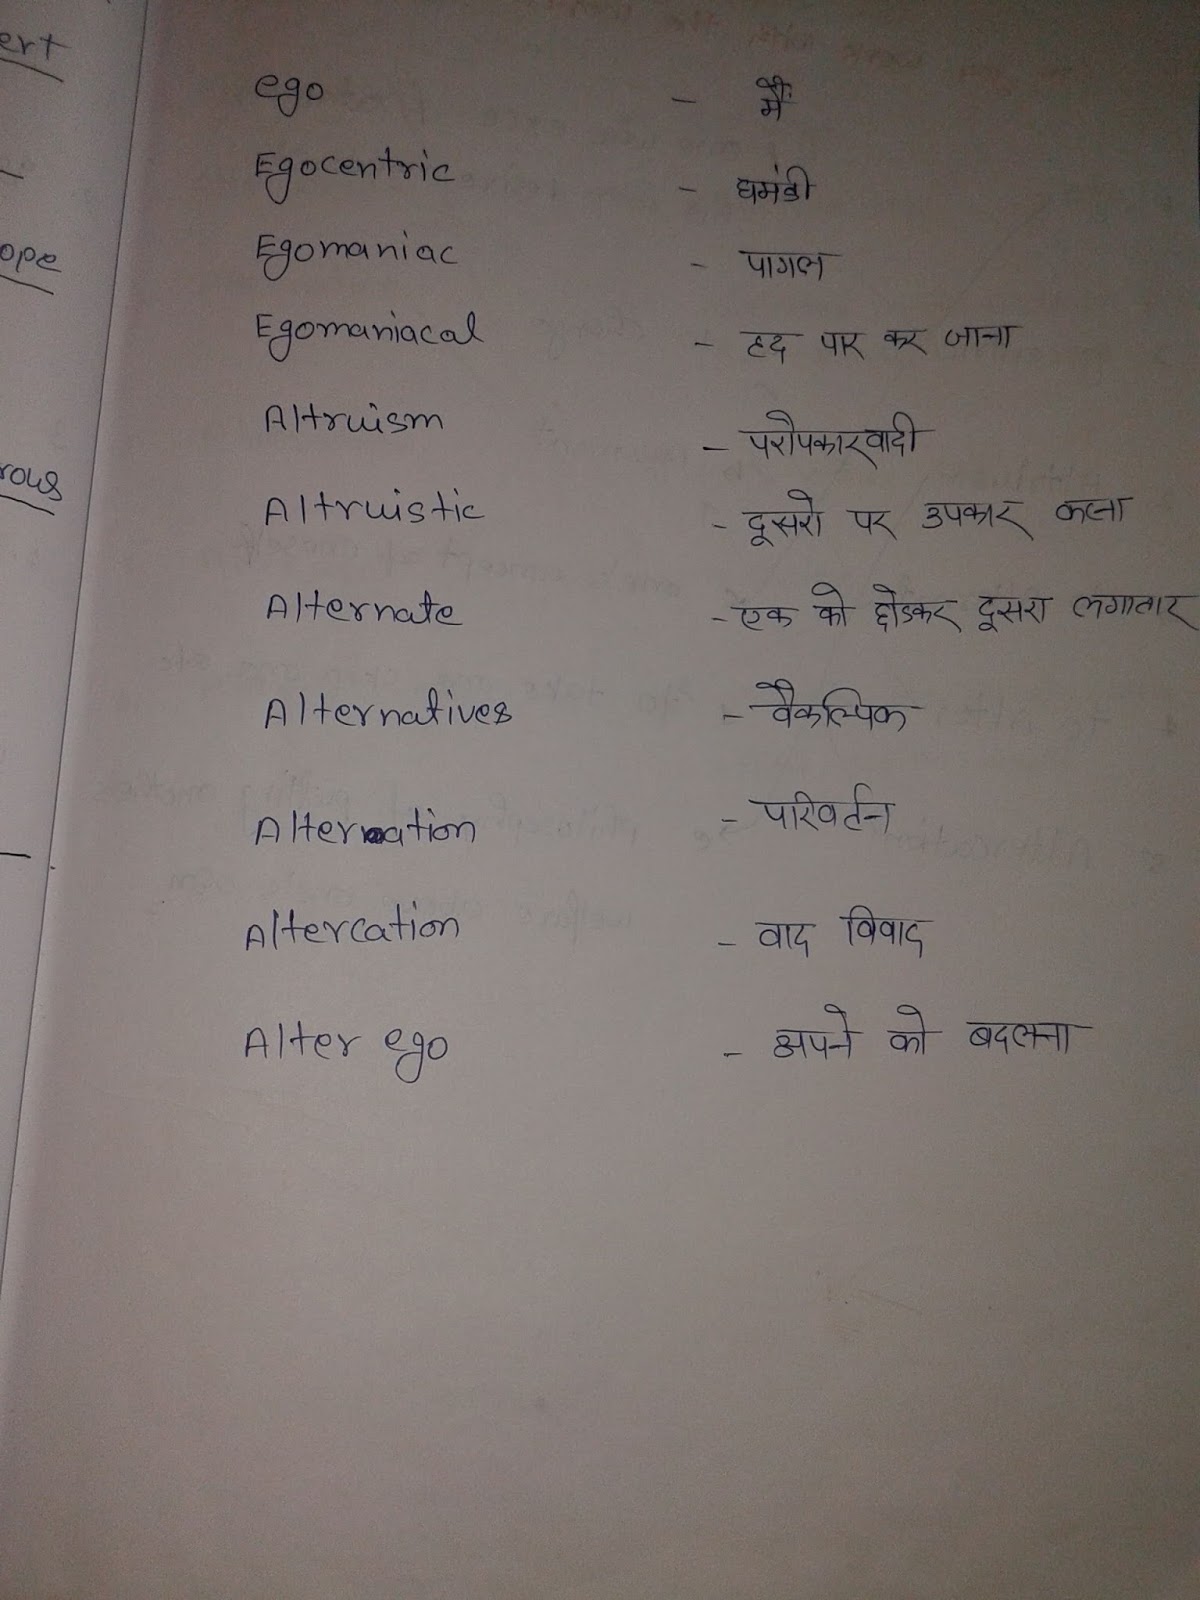 ert
ope
rous
ego - मैं
Egocentric - घमंडी
Egomaniac - पागल
Egomaniacal - हद पार कर जाना
Altruism - परोपकारवादी
Altruistic - दूसरो पर उपकार करना
Alternate - एक को छोडकर दूसरा लगातार
Alternatives - वैकल्पिक
Alteration - परिवर्तन
Altercation - वाद विवाद
Alter ego - अपने को बदलना